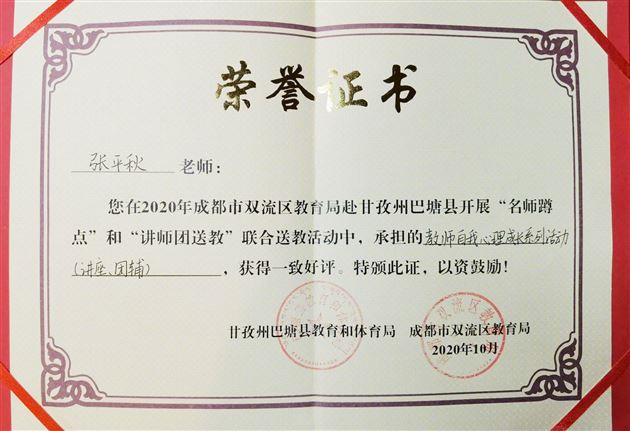 荣誉证书
张平秋 老师：
您在2020年成都市双流区教育局赴甘孜州巴塘县开展“名师蹲
点”和“讲师团送教”联合送教活动中，承担的教师自我心理成长系列活动
（讲座、团辅），获得一致好评。特颁此证，以资鼓励！
甘孜州巴塘县教育和体育局 成都市双流区教育局
2020年10月